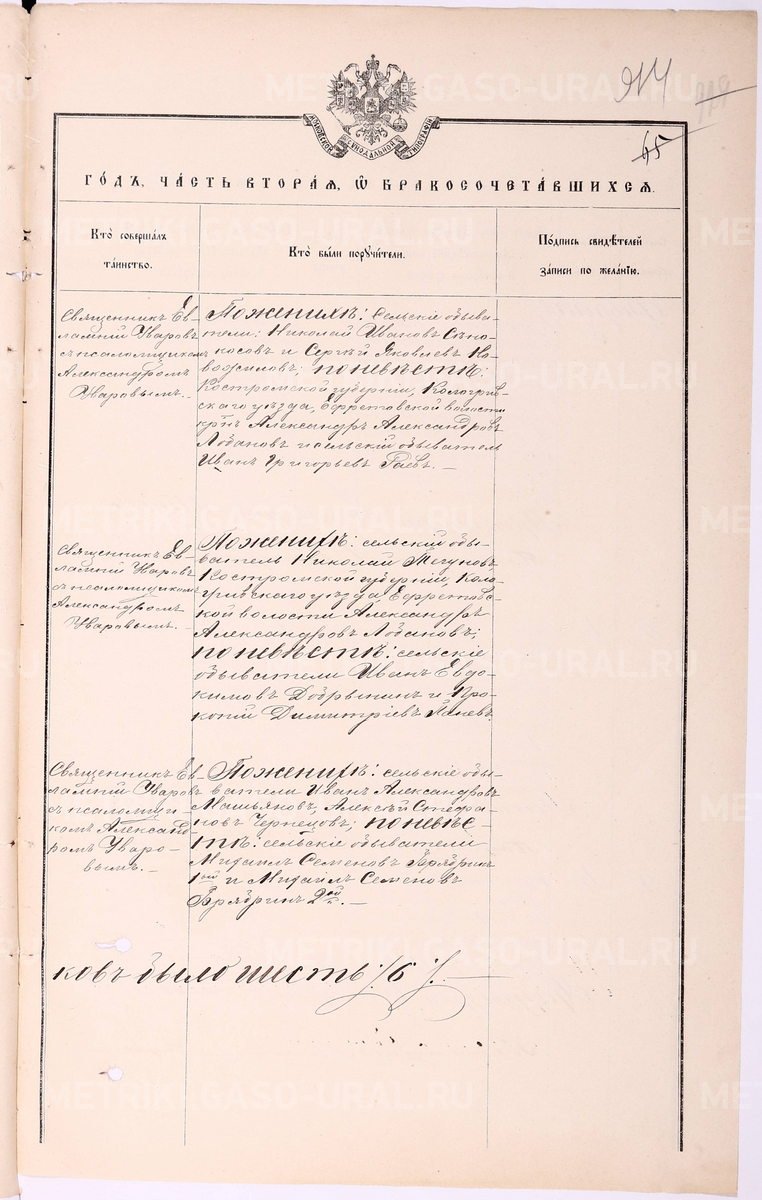 914
65
МОСКОВСКОЙ СѴНОДАЛЬНОЙ ТИПОГРАФІИ
ГО́ДЪ, ЧА́СТЬ ВТОРА́Я, Ѡ҆ БРАКОСОЧЕТА́ВШИХСѦ.
Кто̀ соверша́лъ
та́инство.
Кто̀ бы́ли порꙋчи́тели.
По́дпись свидѣ́телей
за́писи по жела́нїю.
Священникъ Ев-
лампій Уваровъ
съ псаломщикомъ
Александромъ
Уваровымъ.
По женихѣ: сельскіе обыва-
тели: Николай Ивановъ Сѣно-
косовъ и Сергѣй Яковлевъ
по невѣстѣ:
Костромской губерніи, Кологрив-
скаго уѣзда, Ефремовской волости
крѣн. Александръ Александровъ
Лобановъ и сельскій обыватель
Иванъ Григорьевъ Гаевъ. —
Священникъ Ев-
лампій Уваровъ
съ псаломщикомъ
Александромъ
Уваровымъ. —
По женихѣ: сельскій обы-
ватель Николай
Костромской губерніи, Коло-
гривскаго уѣзда Ефремовс-
кой волости Александръ
Александровъ Лобановъ;
по невѣстѣ: сельскіе
обыватели Иванъ Евдо-
кимовъ Добрынинъ и Про-
копій Димитріевъ Паневъ
Священникъ Ев-
лампій Уваровъ
съ псаломщи-
комъ Александ-
ромъ Уваро-
вымъ. —
По женихѣ: сельскіе обы-
ватели Иванъ Александровъ
Машьяновъ, Алексѣй Стефа-
новъ Чернецовъ; по невѣс-
тѣ: сельскіе обыватели
Михаилъ Семеновъ
1ой и Михаилъ Семеновъ
2ой. —
ковъ было шесть /6/.
METRIKI.GASO-URAL.RU